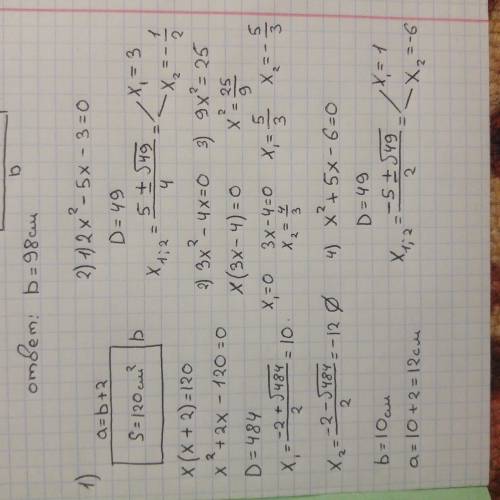 b
ответ: b = 98 см
1)
a = b + 2
S = 120 см² b
x(x + 2) = 120
x² + 2x - 120 = 0
D = 484
x₁ = (-2 + √484)/2 = 10
x₂ = (-2 - √484)/2 = -12 ∅
b = 10 см
a = 10 + 2 = 12 см
2) 1) 2x² - 5x - 3 = 0
D = 49
x₁;₂ = (5 ± √49)/4 = x₁ = 3
x₂ = -1/2
2) 3x² - 4x = 0
x(3x - 4) = 0
x₁ = 0 3x - 4 = 0
x₂ = 4/3
3) 9x² = 25
x² = 25/9
x₁ = 5/3 x₂ = -5/3
4) x² + 5x - 6 = 0
D = 49
x₁;₂ = (-5 ± √49)/2 = x₁ = 1
x₂ = -6